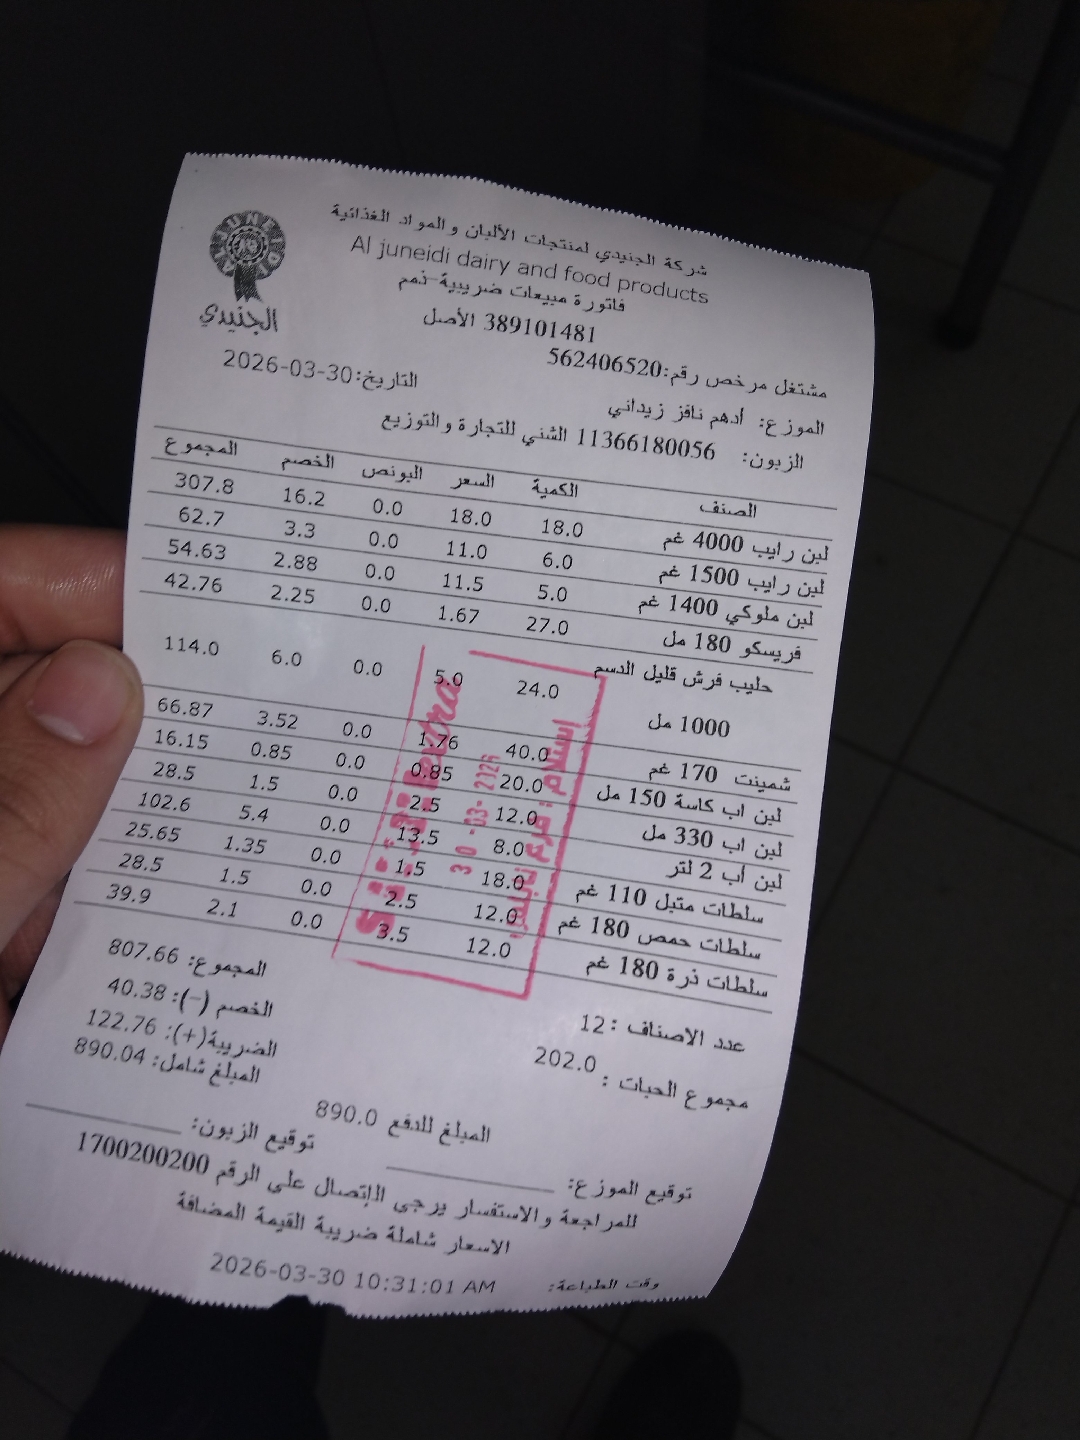 AL JUNEIDI
الجنيدي
شركة الجنيدي لمنتجات الألبان والمواد الغذائية
Al juneidi dairy and food products
فاتورة مبيعات ضريبية-ذمم
389101481 الأصل
مشتغل مرخص رقم:562406520
التاريخ:2026-03-30
الموزع: أدهم نافز زيداني
الزبون: 11366180056 الشني للتجارة والتوزيع
الصنف الكمية السعر البونص الخصم المجموع
لبن رايب 4000 غم 18.0 18.0 0.0 16.2 307.8
لبن رايب 1500 غم 6.0 11.0 0.0 3.3 62.7
لبن ملوكي 1400 غم 5.0 11.5 0.0 2.88 54.63
فريسكو 180 مل 27.0 1.67 0.0 2.25 42.76
حليب فرش قليل الدسم
1000 مل 24.0 5.0 0.0 6.0 114.0
شمينت 170 غم 40.0 1.76 0.0 3.52 66.87
لبن اب كاسة 150 مل 20.0 0.85 0.0 0.85 16.15
لبن اب 330 مل 12.0 2.5 0.0 1.5 28.5
لبن أب 2 لتر 8.0 13.5 0.0 5.4 102.6
سلطات متبل 110 غم 18.0 1.5 0.0 1.35 25.65
سلطات حمص 180 غم 12.0 2.5 0.0 1.5 28.5
سلطات ذرة 180 غم 12.0 3.5 0.0 2.1 39.9
extra
30-03-2026
عدد الاصناف :12
مجموع الحبات : 202.0
المجموع: 807.66
الخصم (-): 40.38
الضريبة(+): 122.76
المبلغ شامل: 890.04
المبلغ للدفع 890.0
توقيع الزبون:
توقيع الموزع:
للمراجعة والاستفسار يرجى الإتصال على الرقم 1700200200
الاسعار شاملة ضريبة القيمة المضافة
وقت الطباعة: 2026-03-30 10:31:01 AM